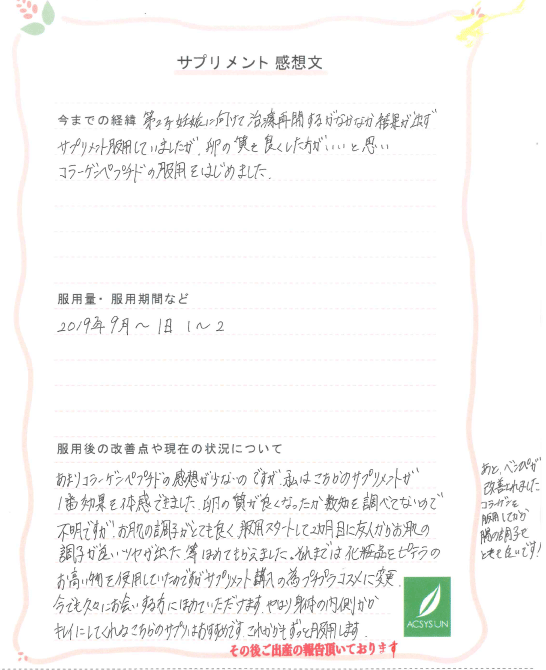 サプリメント 感想文
今までの経緯 第二子妊娠に向けて治療再開するがなかなか結果が出ず
サプリメント服用していましたが、卵の質を良くした方がいいと思い
コラーゲンペプチドの服用をはじめました。
服用量・服用期間など
2019年9月〜 1日 1〜2
服用後の改善点や現在の状況について
あまりコラーゲンペプチドの感想が少ないのですが、私はこちらのサプリメントが
1番効果を体感できました。卵の質が良くなったか数知を調べてないので
不明ですが、お肌の調子がとても良く、服用スタートして2カ月目に友人からお肌の
調子が良い、ツヤが出た、等ほめてもらえました。それまでは化粧品をピテラの
お高い物を使用していたのですがサプリメント購入の為プチプラコスメに変更。
今でも久々にお会いする方にほめていただけます。やはり身体の内側から
キレイにしてくれるこちらのサプリはおすすめです。これからもずっと服用します。
あと、ベンピが
改善されました
コラーゲンを
服用してから
腸の調子も
とても良いです!
ACSYSUN
その後ご出産の報告頂いております